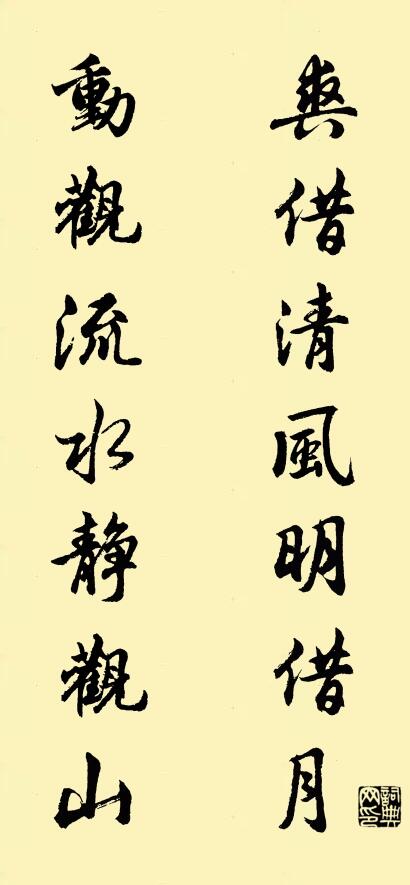 爽借清風明借月
動觀流水静觀山
詞典网印